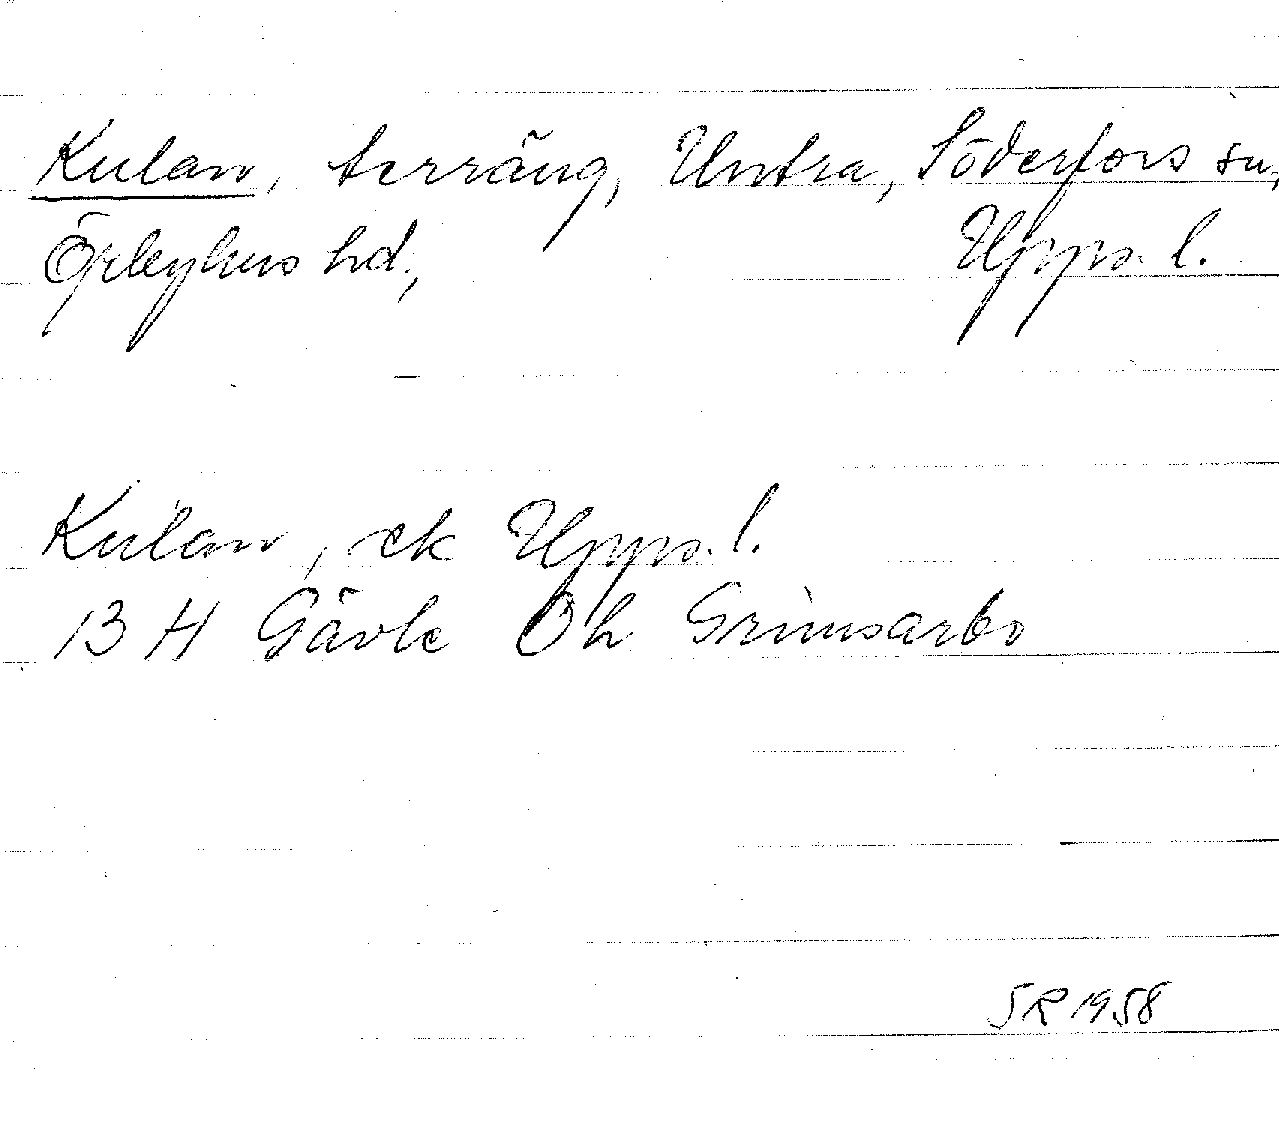 Kulan, terräng, Untra, Söderfors sn,
Örbyhus hd, Upps. l.
Kulan, ek Upps. l.
13 H Gävle Öh Grimsarbo
SR 1958